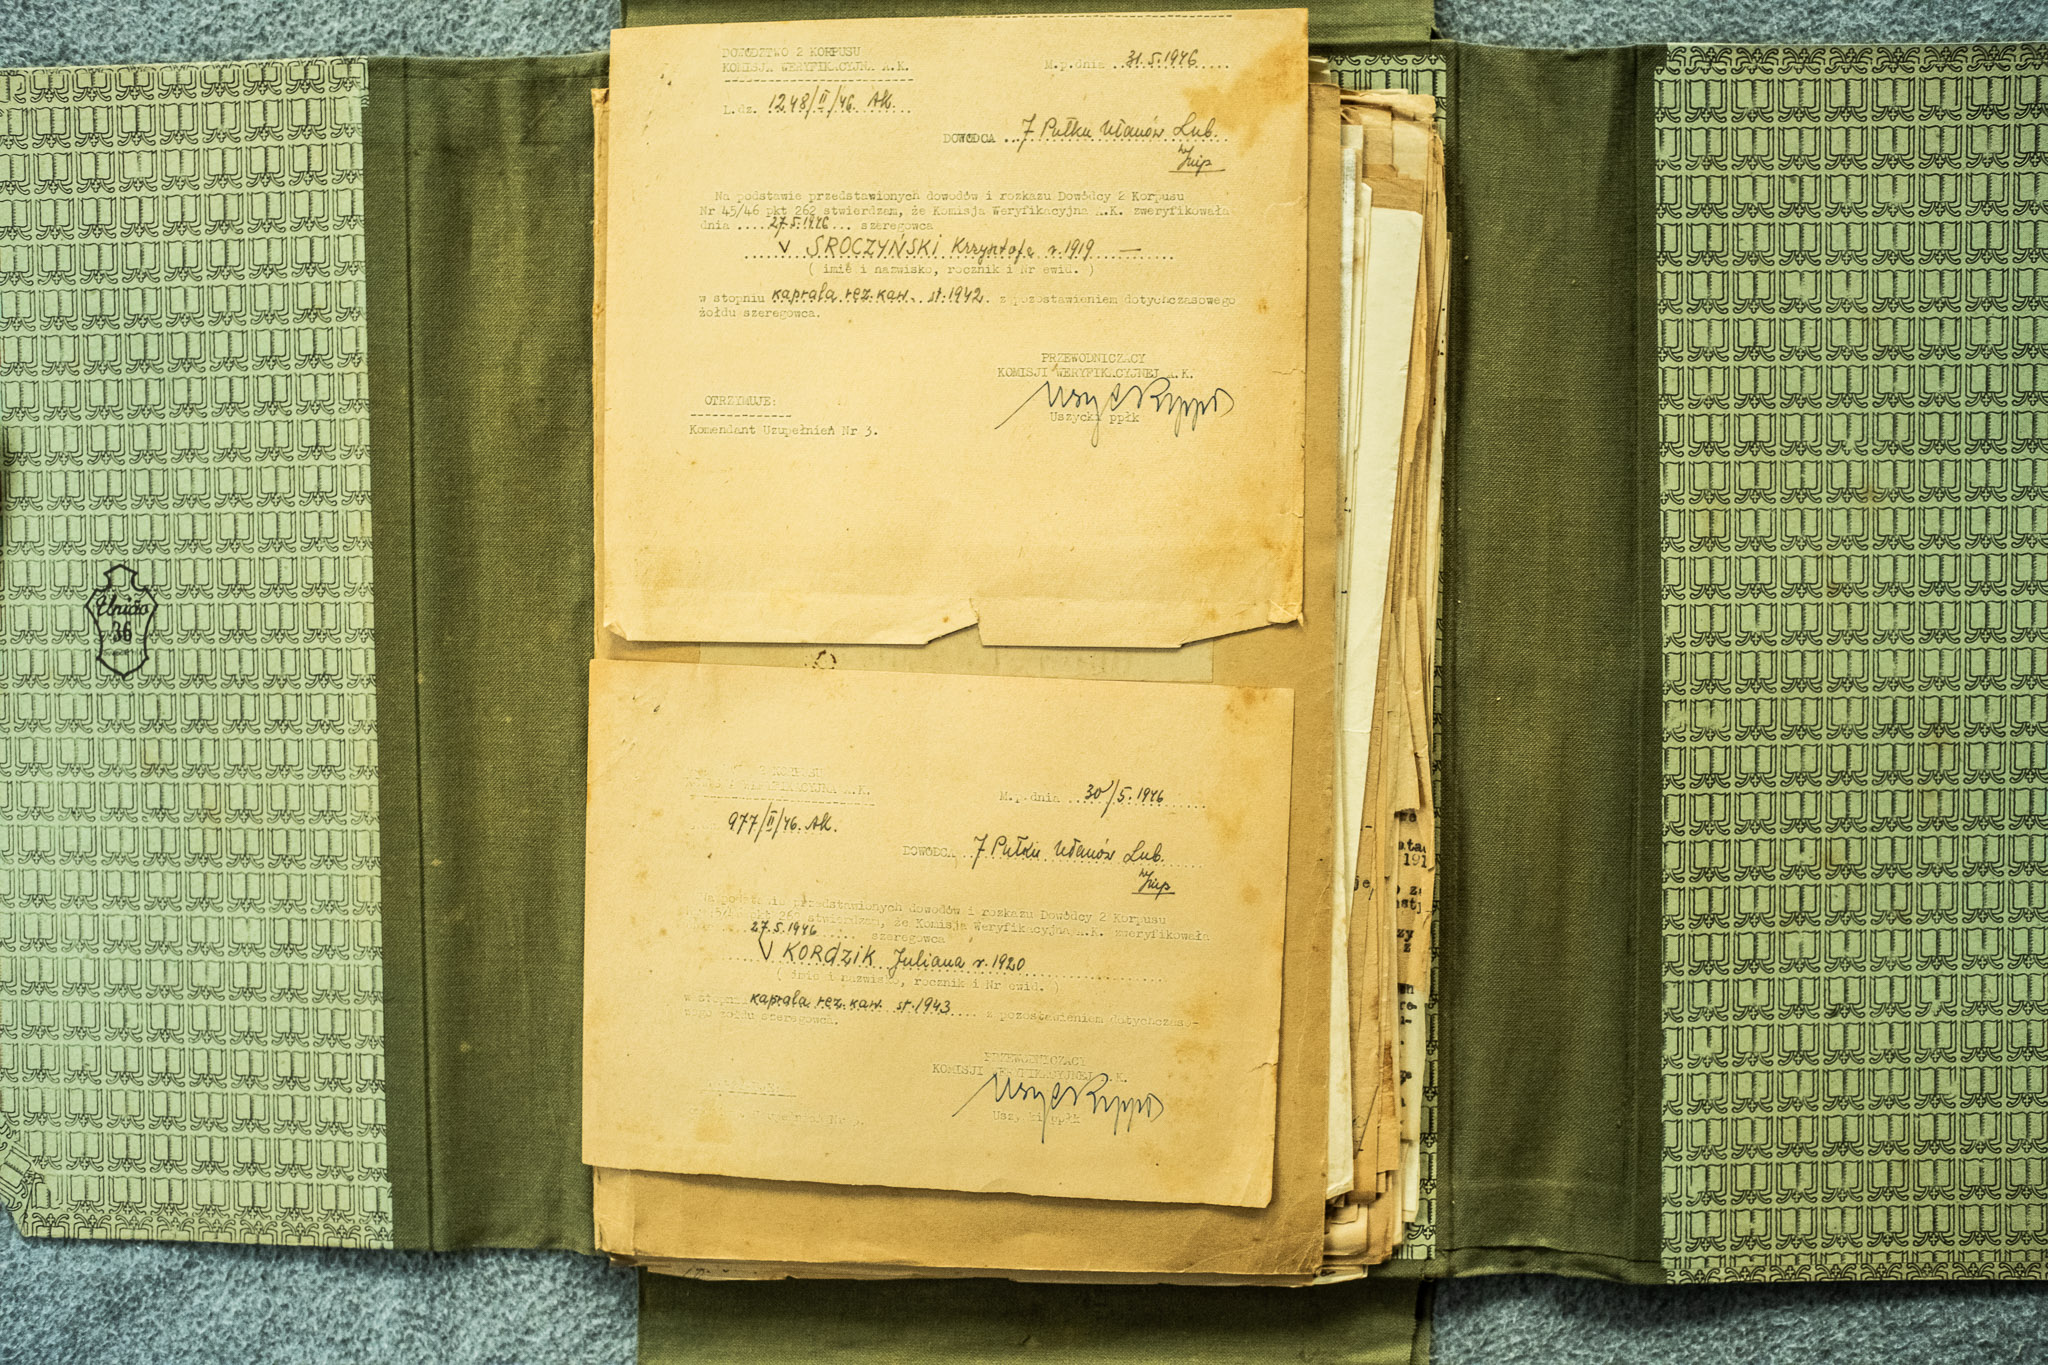 DOWÓDZTWO 2 KORPUSU
KOMISJA WERYFIKACYJNA A.K.
M.p.dnia 31.5.1946
L.dz. 1248/II/46. AK.
DOWÓDCA 7 Pułku Ułanów Lub.
w/mp
Na podstawie przedstawionych dowodów i rozkazu Dowódcy 2 Korpusu
Nr 45/46 pkt 262 stwierdzam, że Komisja Weryfikacyjna A.K. zweryfikowała
dnia 27.5.1946 szeregowca
V SROCZYŃSKI Krzysztofa r. 1919 —
( imię i nazwisko, rocznik i Nr ewid. )
w stopniu kaprala rez. kaw. st. 1942. z pozostawieniem dotychczasowego
żołdu szeregowca.
PRZEWODNICZĄCY
KOMISJI WERYFIKACYJNEJ A.K.
Uszycki ppłk
OTRZYMUJE:
Komendant Uzupełnień Nr 3.
2 KORPUSU
WERYFIKACYJNA A.K.
M.p.dnia 30/5.1946
977/II/46. AK.
DOWÓDCA 7 Pułku Ułanów Lub.
w/mp
Na podstawie przedstawionych dowodów i rozkazu Dowódcy 2 Korpusu
pkt 262 stwierdzam, że Komisja Weryfikacyjna A.K. zweryfikowała
27.5.1946 szeregowca
V KORDZIK Juliana r. 1920
( imię i nazwisko, rocznik i Nr ewid. )
w stopniu kaprala rez. kaw. st. 1943 z pozostawieniem dotychczaso-
wego żołdu szeregowca.
PRZEWODNICZĄCY
KOMISJI WERYFIKACYJNEJ A.K.
Uszycki ppłk
União
36